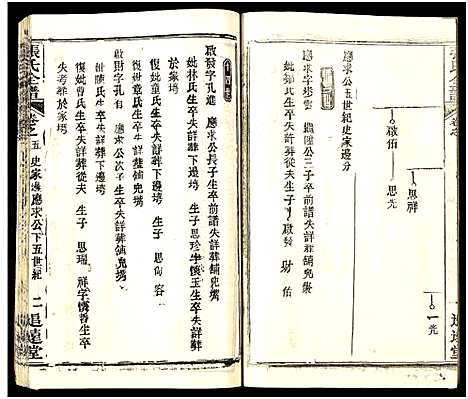 追遠堂
一 光
思祥
啟佑 思光
應求公五世紀史家邊分
應求字步雲 繼聖公三子卒前譜失詳葬鋪兒塆
妣鄭氏生卒失詳葬從夫生子 啟發 財佑
啟發字孔進 應求公長子生卒前譜失詳葬鋪兒塆
妣林氏生卒失詳葬下邊塆 生子 思珍 生卒失詳葬
於家塆
復妣童氏生卒失詳葬下邊塆 生子 思 容
啟財字孔有 應求公次子生卒失詳葬鋪兒塆
妣陳氏生卒失詳葬下邊塆
復妣曾氏生卒失詳葬從夫 生子 思瑞 祥字 生卒
失考葬於家塆
張氏全譜 卷之五 史家邊應求公下五世紀 二 追遠堂